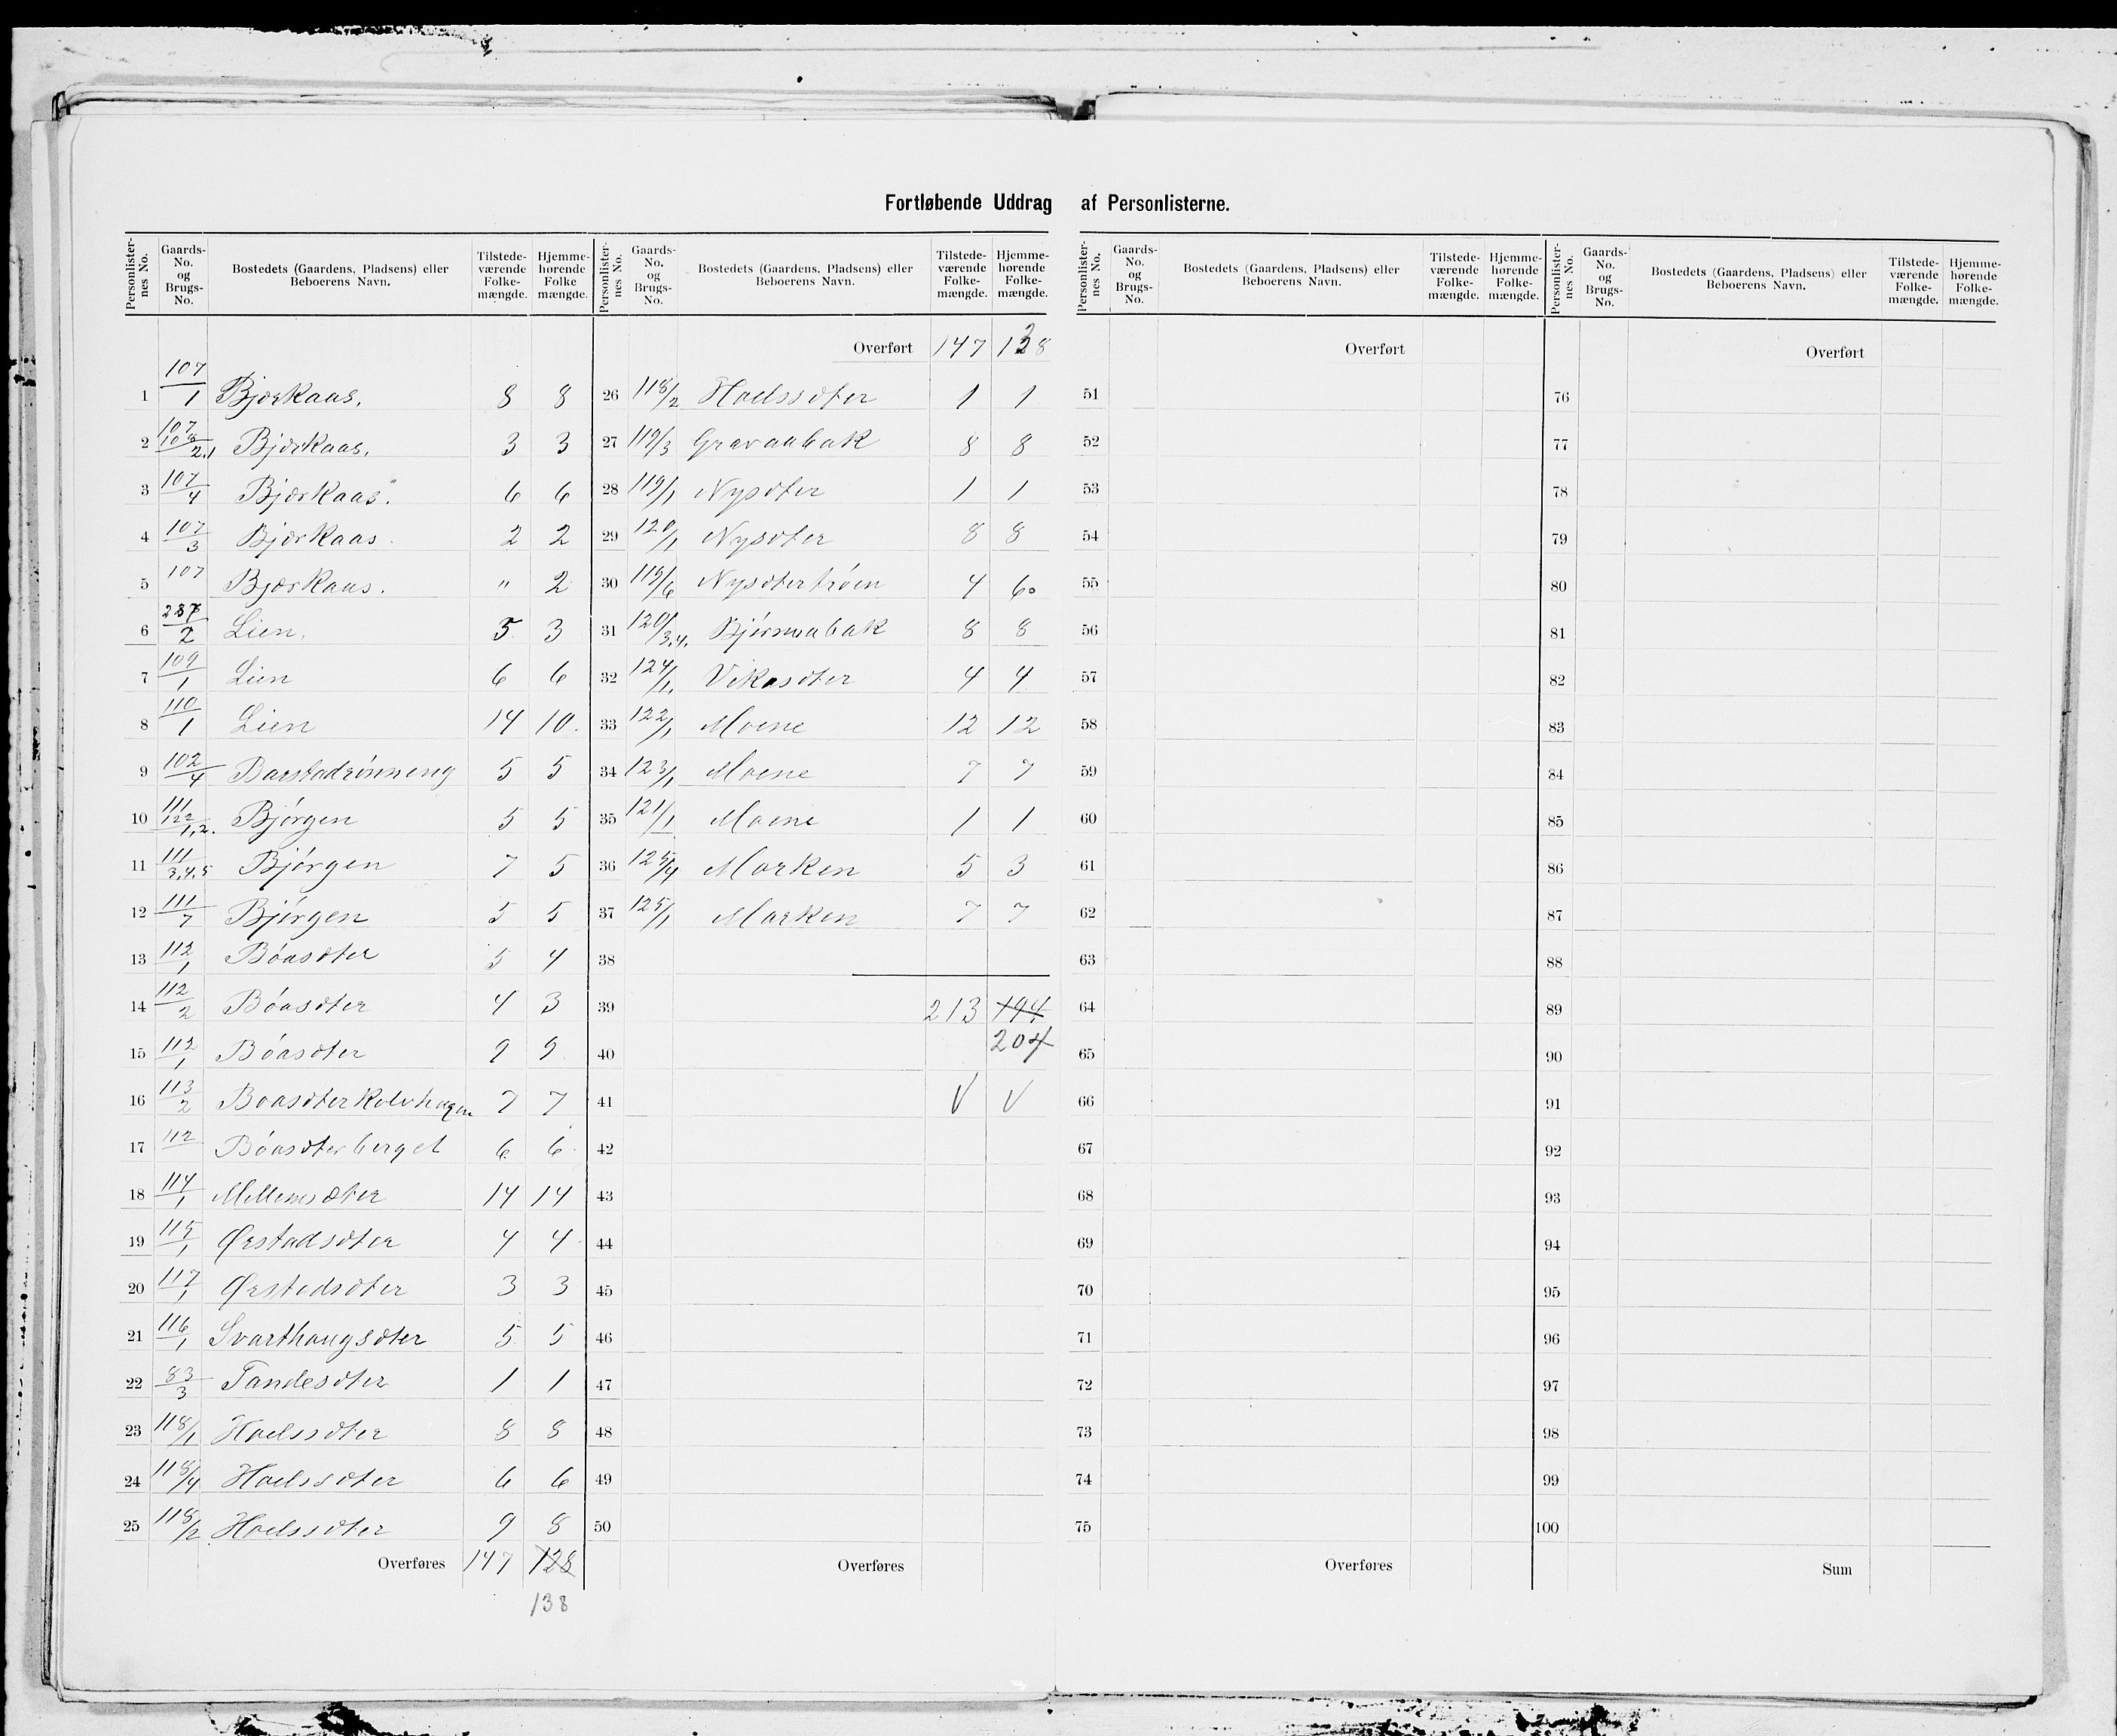 Fortløbende Uddrag af Personlisterne.
Personlister-nes No. Gaards-No. og Brugs-No. Bostedets (Gaardens, Pladsens) eller Beboerens Navn. Tilstede-værende Folke-mængde. Hjemme-hørende Folke mængde. Personlister-nes No. Gaards-No. og Brugs-No. Bostedets (Gaardens, Pladsens) eller Beboerens Navn. Tilstede-værende Folke-mængde. Hjemme-hørende Folke-mængde.
1 107/1 Bjørkaas. 8 8
2 107/108/2.1 Bjørkaas. 3 3
3 107/4 Bjørkaas. 6 6
4 107/3 Bjørkaas. 2 2
5 107 Bjørkaas. " 2
6 2 Lien. 5 3
7 109/1 Lien 6 6
8 110/1 Lien 14 10.
9 102/4 Barstadrønneng 5 5
10 111/122/1,2. Bjørgen 5 5
11 111/3,4,5 Bjørgen 7 5
12 111/7 Bjørgen 5 5
13 112/1 Bóasæter 5 4
14 112/2 Bóasæter 4 3
15 112/1 Bóasæter 9 9
16 113/2 Boasæterkolvhagen 7 7
17 112 Bóasæterberget 6 6
18 114/1 Mellemsæter 14 14
19 115/1 Ørstadsæter 4 4
20 117/1 Ørstadsæter 3 3
21 116/1 Svarthaugsæter 5 5
22 83/3 Tandesæter 1 1
23 118/1 Hoelssæter 8 8
24 118/4 Hoelssæter 6 6
25 118/2 Hoelssæter 9 8
Overføres 147 128
138
Overført 147 138
26 118/2 Hoelssæter 1 1
27 119/3 Gravaabak 8 8
28 119/1 Nysæter 1 1
29 120/1 Nysæter 8 8
30 119/6 Nysætertrøen 4 6
31 120/3,4. Bjørnaabak 8 8
32 124/1, Vikasæter 4 4
33 122/1 Moene 12 12
34 123/1 Moene 7 7
35 121/1 Moene 1 1
36 125/4 Marken 5 3
37 125/1 Marken 7 7
38
39 213 194
40 204
41 V V
42
43
44
45
46
47
48
49
50
Overføres
Personlister-nes No. Gaards-No. og Brugs-No. Bostedets (Gaardens, Pladsens) eller Beboerens Navn. Tilstede-værende Folke-mængde. Hjemme-hørende Folke-mængde. Personlister-nes No. Gaards-No. og Brugs-No. Bostedets (Gaardens, Pladsens) eller Beboerens Navn. Tilstede-værende Folke-mængde. Hjemme-hørende Folke-mængde.
Overført
51
52
53
54
55
56
57
58
59
60
61
62
63
64
65
66
67
68
69
70
71
72
73
74
75
Overføres
Overført
76
77
78
79
80
81
82
83
84
85
86
87
88
89
90
91
92
93
94
95
96
97
98
99
100
Sum